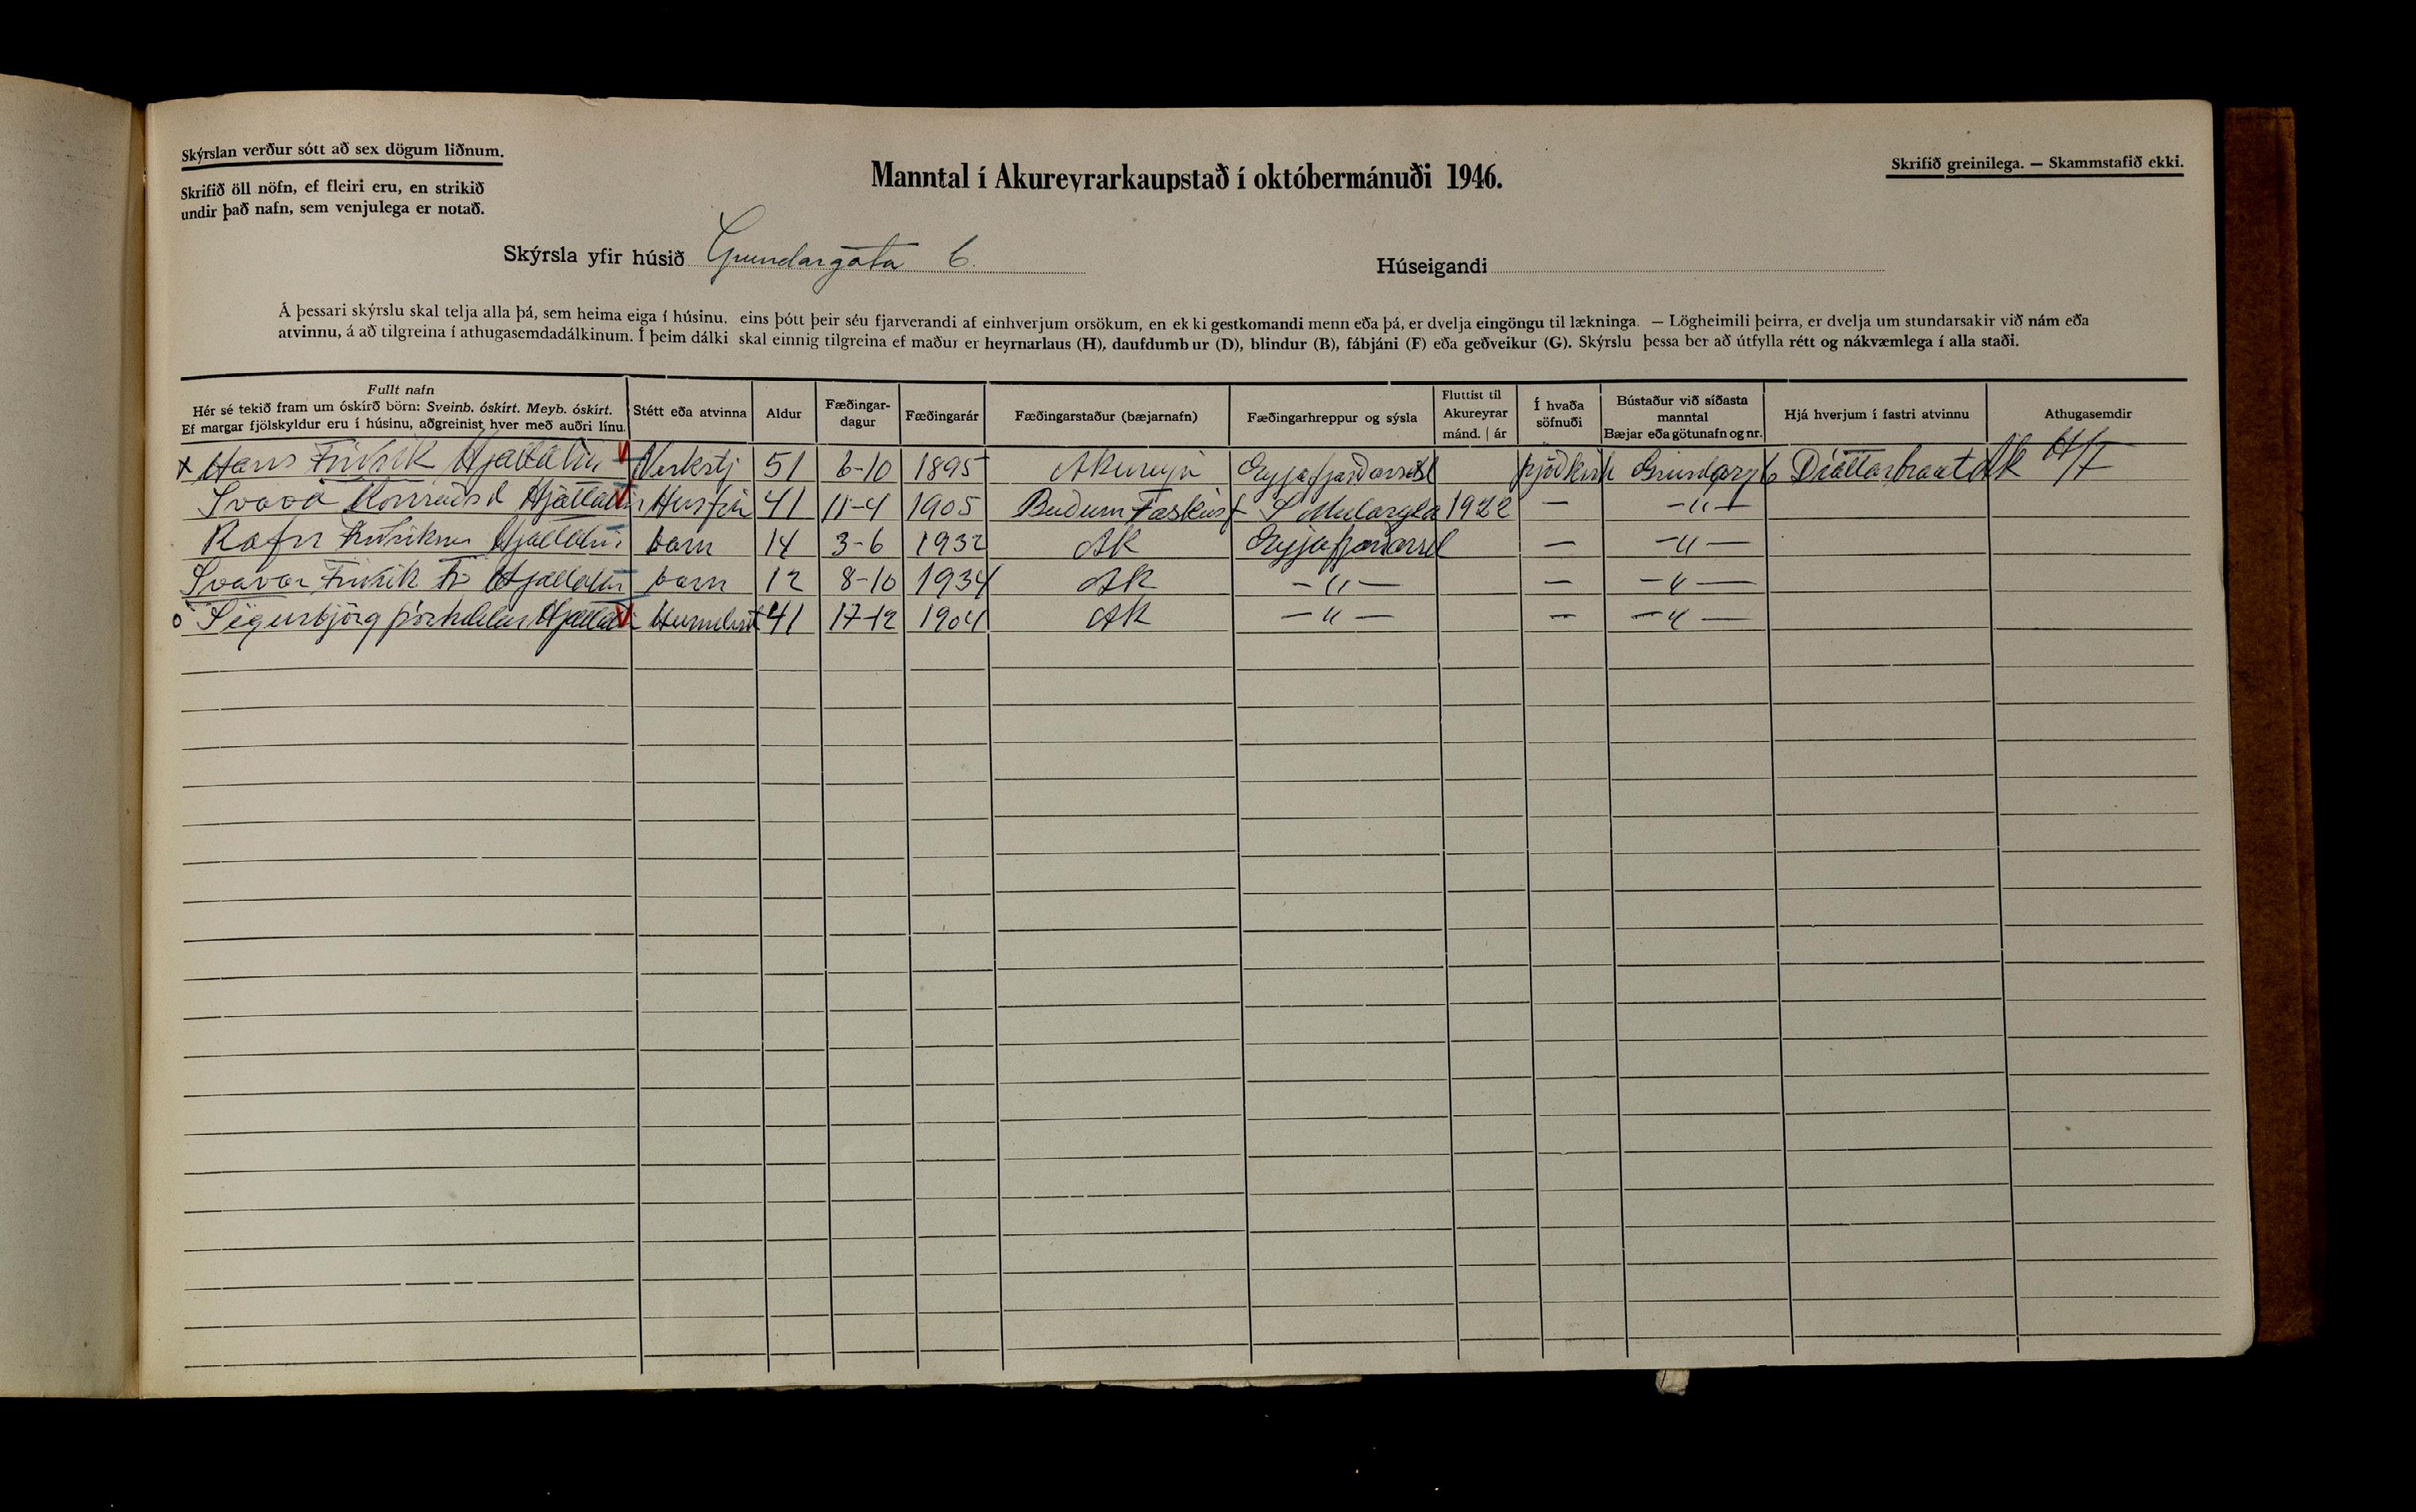 Skýrslan verður sótt að sex dögum liðnum.
Skrifið öll nöfn, ef fleiri eru, en strikið
undir það nafn, sem venjulega er notað.
Manntal í Akureyrarkaupstað í októbermánuði 1946.
Skrifið greinilega. — Skammstafið ekki.
Skýrsla yfir húsið Grundargata 6.
Húseigandi
Á þessari skýrslu skal telja alla þá, sem heima eiga í húsinu, eins þótt þeir séu fjarverandi af einhverjum orsökum, en ekki gestkomandi menn eða þá, er dvelja eingöngu til lækninga. — Lögheimili þeirra, er dvelja um stundarsakir við nám eða
atvinnu, á að tilgreina í athugasemdadálkinum. Í þeim dálki skal einnig tilgreina ef maður er heyrnarlaus (H), daufdumbur (D), blindur (B), fábjáni (F) eða geðveikur (G). Skýrslu þessa ber að útfylla rétt og nákvæmlega í alla staði.
Fullt nafn
Hér sé tekið fram um óskírð börn: Sveinb. óskírt. Meyb. óskírt.
Ef margar fjölskyldur eru í húsinu, aðgreinist hver með auðri línu.
Stétt eða atvinna
Aldur
Fæðingar-
dagur
Fæðingarár
Fæðingarstaður (bæjarnafn)
Fæðingarhreppur og sýsla
Fluttist til
Akureyrar
mánd. | ár
Í hvaða
söfnuði
Bústaður við síðasta
manntal
Bæjar eða götunafn og nr.
Hjá hverjum í fastri atvinnu
Athugasemdir
x Hans Friðrik Hjaltalín Verkstj 51 6-10 1895 Akureyri Eyjafjarðarsýsl þjóðkirk Grundarg 6 Dráttarbraut Ak
Svava Konráðsd Hjaltalín Husfrú 41 11-4 1905 Budum Faskrúsf S Mulasysla 1922 — -"-
Rafn Friðriksson Hjaltalín barn 14 3-6 1932 Ak Eyjafjarðarsýsl — -"-
Svavar Friðrik Fr Hjaltalín barn 12 8-10 1934 Ak -"- — -"-
o Sigurbjörg Hjaltalín 41 17-12 1904 Ak -"- — -"-